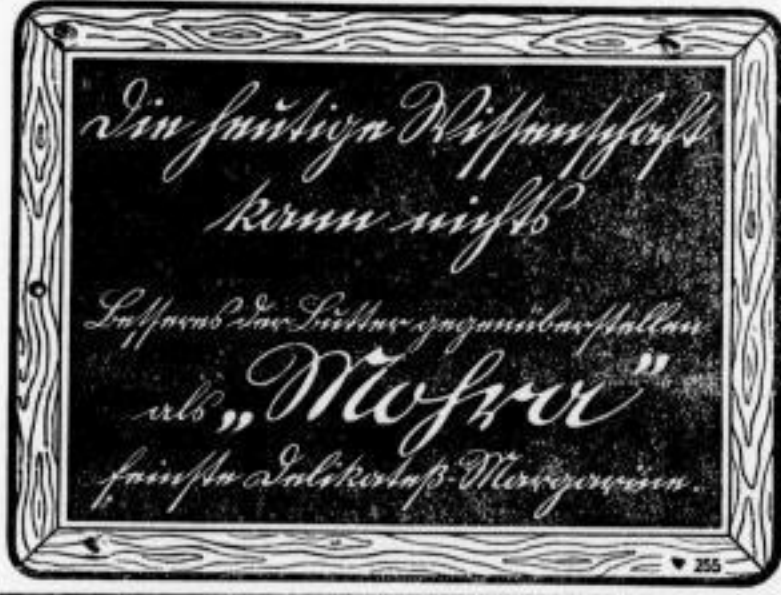 Die heutige Wissenschaft
kann nichts
Besseres der Butter gegenüberstellen
als „Mohra”
feinste Delikateß-Margarine.
♥ 255